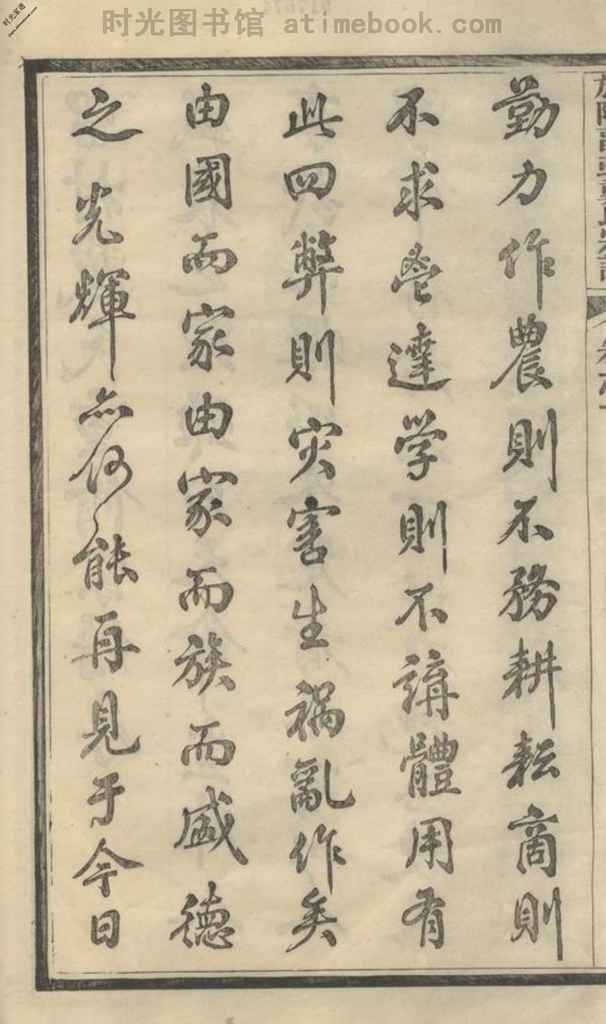 时光图书馆 atimebook.com
时光家谱
勤力作農則不務耕耘商則
不求營達学則不講體用有
此四弊則灾害生祸亂作矣
由國而家由家而族而盛德
之光輝亦何能再見于今日